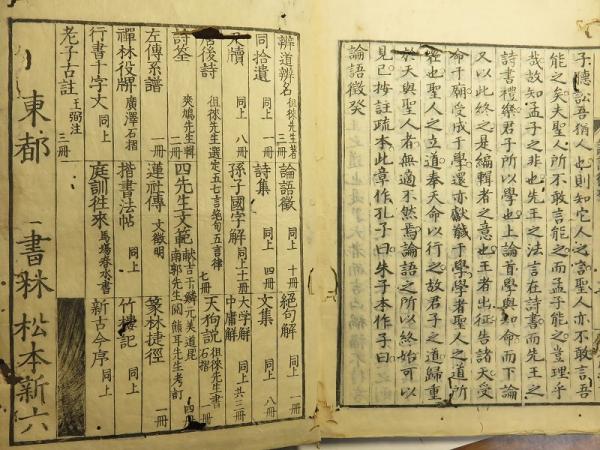 子聽訟吾猶人也則知它人之言聖人亦不敢言吾
能之矣夫聖人所不敢言而孟子能之豈理乎
哉故知孟子之非也先王之法言在詩書而先王之
詩書禮樂君子所以學也上論首學與知命而下論
又以此終之是編輯者之意也王者出征告諸天受
命于廟受成于學還亦獻馘于學學者聖人之道所
在也聖人之立道奉天命以行之故君子之道歸重
於天與聖人者無適不然焉論語之所以終始可以
見已按註疏本此章作孔子曰朱子本作子曰
論語徵癸
辨道辨名 徂徠先生著 三冊
論語徵 同上 十冊
絕句解 同上 一冊
同拾遺 同上 一冊
詩集 同上 四冊
文集 同上 八冊
尺牘 同上 八冊
孫子國字解 同上 十一冊
大学解 中庸解 同上 共三冊
唐後詩 徂徠先生選定五七言絕句五言律 七冊
天狗説 徂徠先生書 石摺 一冊
詩筌 爽鳩先生輯 二冊
四先生文範 献吉于鱗元美道昆 南郭先生閲熊耳先生考訂 四冊
左傳系譜 一冊
蓮社傳 文徵明
篆林捷徑 一冊
禪林役牌 廣澤石摺
楷書法帖 同上
竹樓記 同上
行書千字文 同上
庭訓往來 馬場春水書
新古今序 同上
老子古註 王弼注 二冊
東都 書林 松本新六